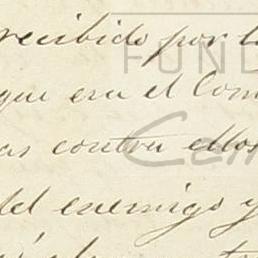 recibido por l
que era el Com
as contra ellos
del enemigo y
FUND